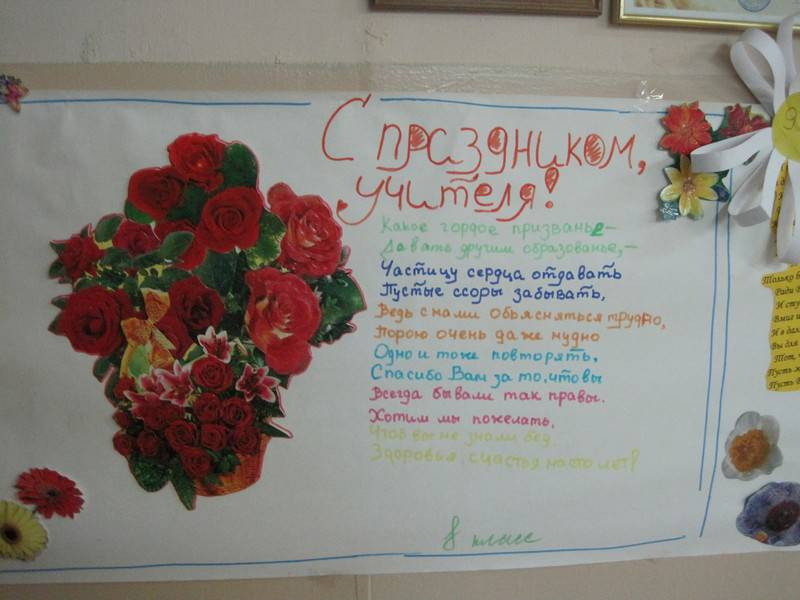 С праздником,
учителя!
Какое гордое призванье-
Давать другим образованье,-
Частицу сердца отдавать
Пустые ссоры забывать,
Ведь с нами объясняться трудно,
Порою очень даже нудно
Одно и тоже повторять.
Спасибо Вам за то, что вы
Всегда бывали так правы.
Хотим мы пожелать,
Чтоб вы не знали бед
Здоровья, счастья на сто лет!
8 класс
Только
Ради
И
В
И в
Вы для
Тот,
Пусть
Пусть